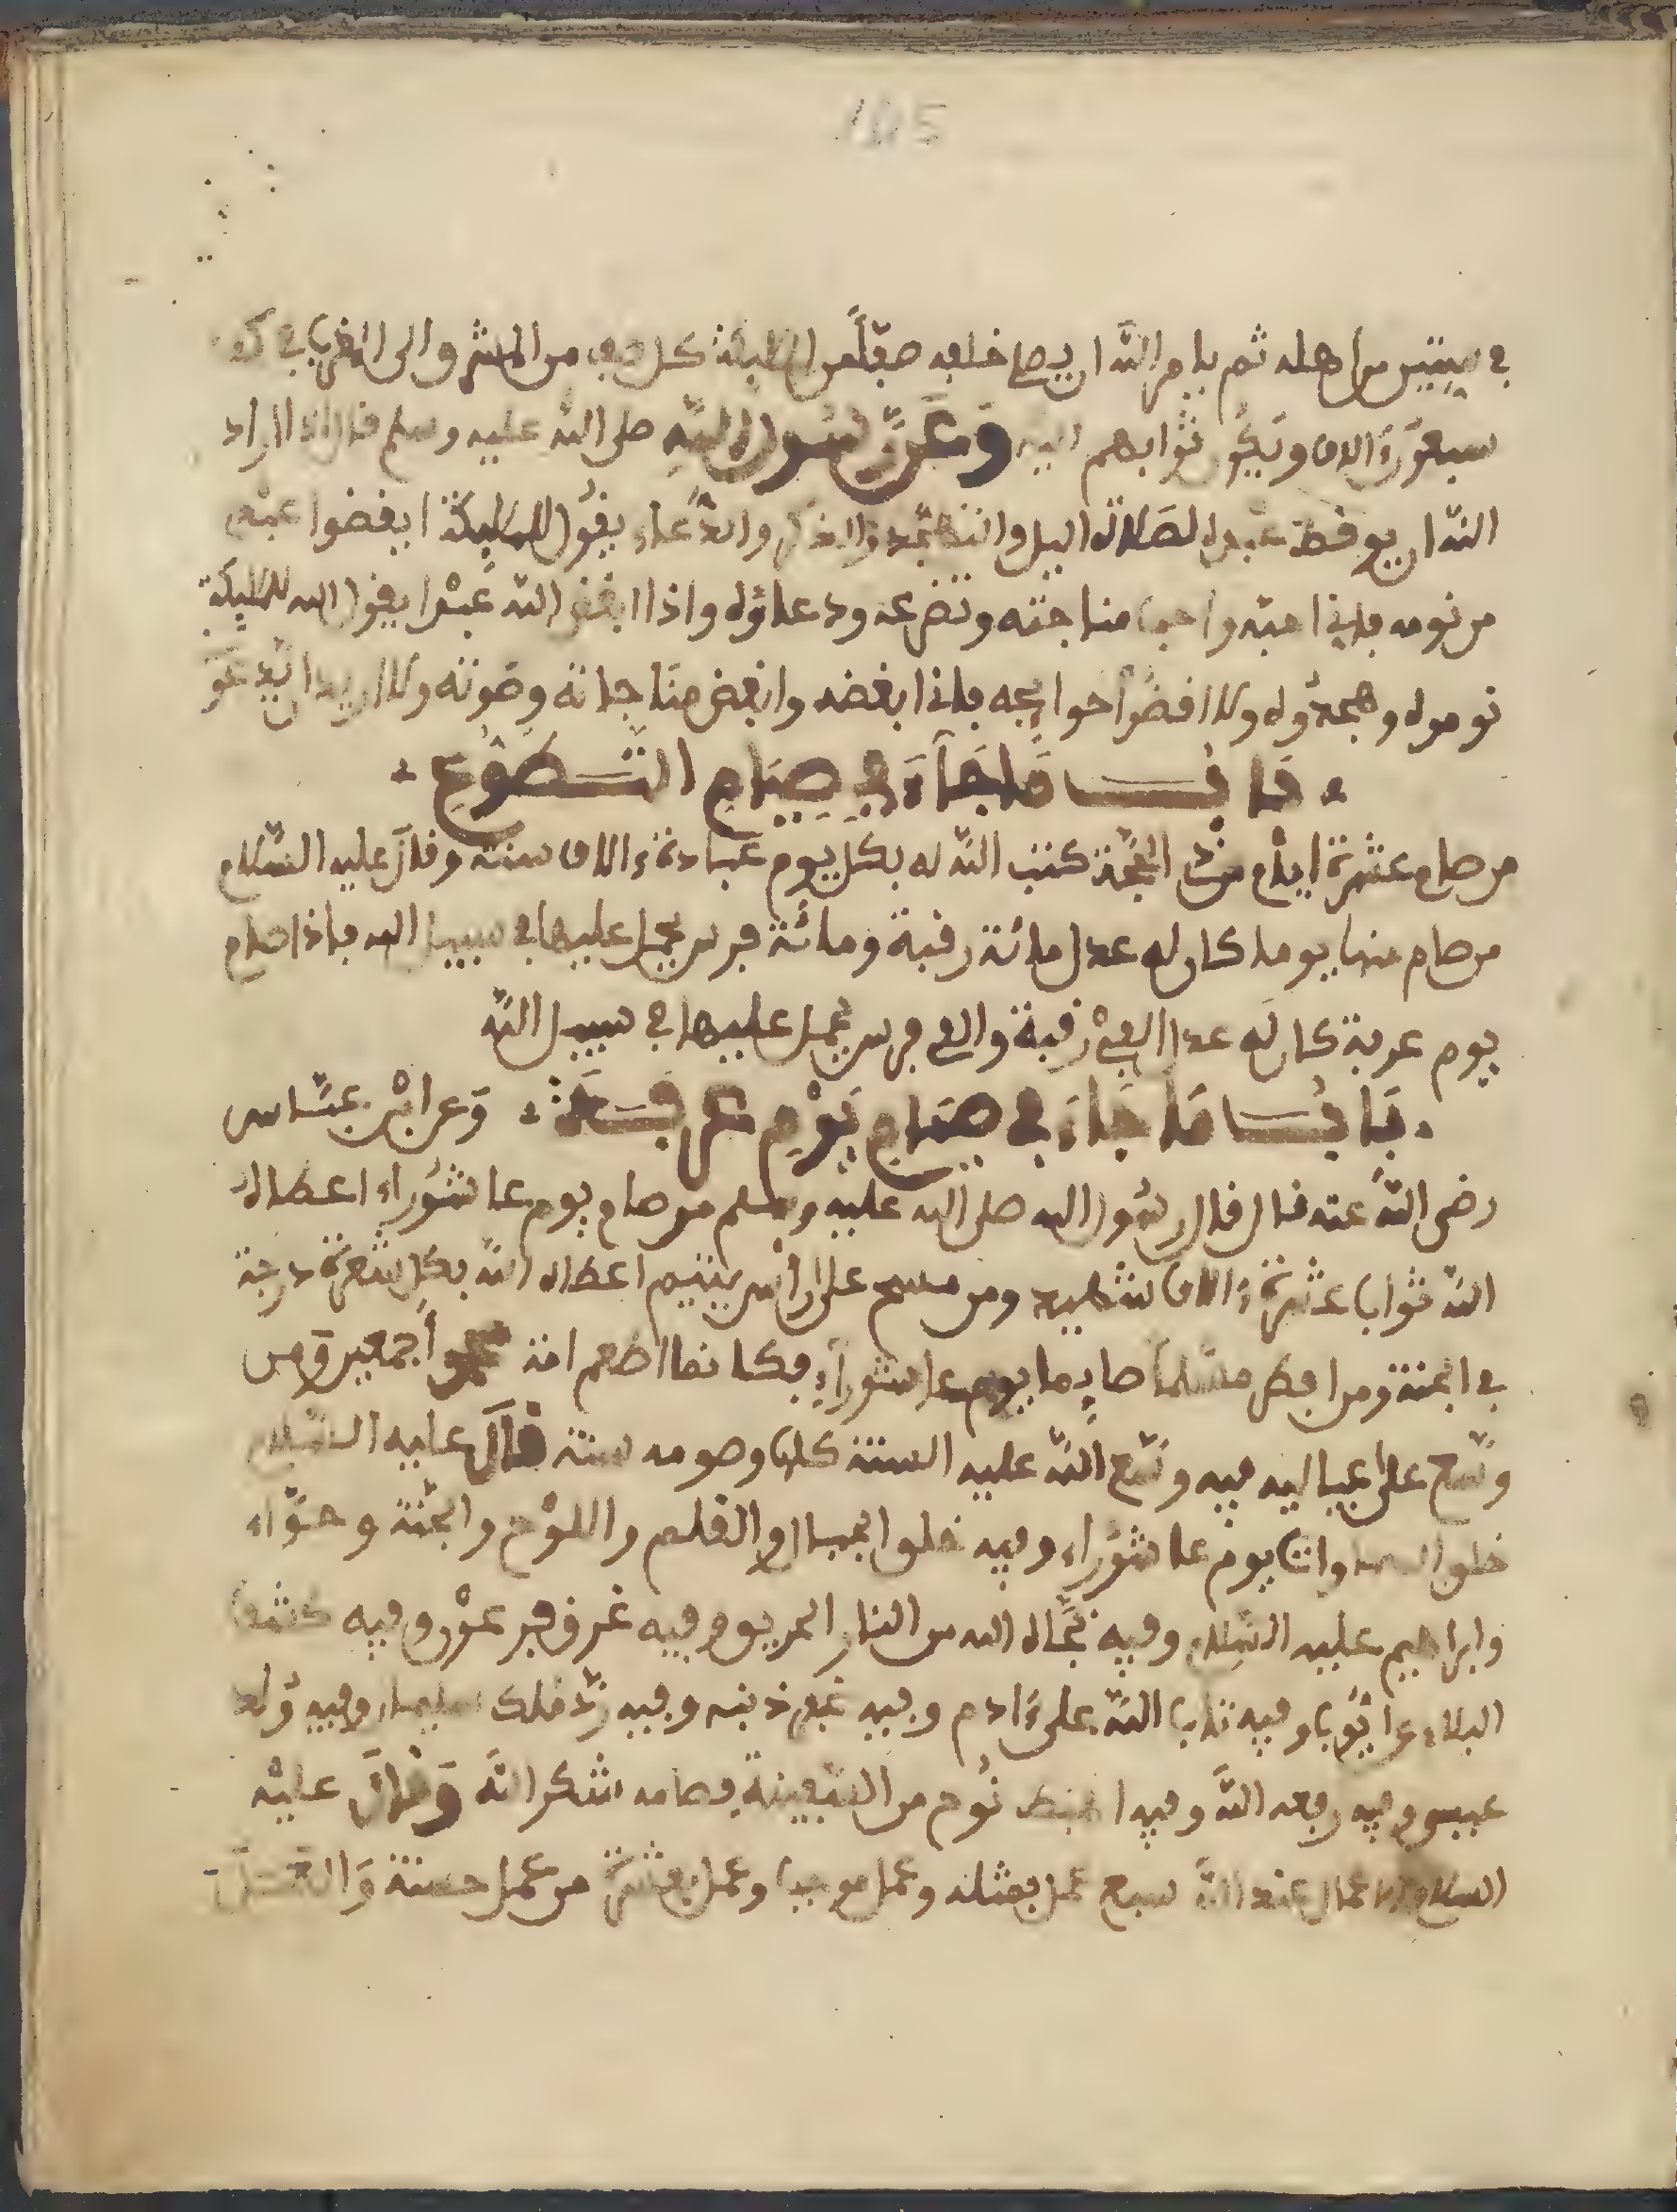 105
في بيتين من اهله ثم يامر الله ان يصلي خلفه صفا من الملئكة كل صف من المشرو الى المغرب في كل
سبعون ءالاف ويكون ثوابهم اليه وَعَن رَّسُول اللهِ صلى الله عليه وسلم قال اذا اراد
الله ان يوقظ عبده لصلاة اليل والتهجد والذكر والدعاء يقول للملئكة ايقضوا عبدي
من نومه فاني احبه واحب مناجته وتضرعه ودعاؤه واذا ابغض الله عبدا يقول الله للملئكة
نوموه وهجدوه ولا اقضوا حوايجه فاني ابغضه وابغض مناجاته وصوته ولا اريد ان يدعو
بَابُ مَا جَآءَ فِي صِيَامِ التَّطَوُّعِ
من صام عشرة ايام من ذي الحجة كتب الله له بكل يوم عبادة ءالاف سنة وقال عليه السلام
من صام منها يوما كان له عدل مائة رقبة ومائة فرس يحمل عليها في سبيل الله فاذا صام
يوم عرفة كان له عدل الفي رقبة والفي فرس يحمل عليها في سبيل الله
بَابُ مَا جَاءَ فِي صِيَامِ يَوْمِ عَرَفَة وَعن ابْن عبَّاس
رضى الله عنه قال قال رسول الله صلى الله عليه وسلم من صام يوم عاشوراء اعطاه
الله ثوابا عشرة ءالاف شهيد ومن مسح على راس يتيم اعطاه الله بكل شعرة درجة
في الجنة ومن افطر مسلما صايما يوم عاشوراء فكانما اطعم امة محمد اجمعين ومن
وسّع على عياليه فيه وسّع الله عليه السنة كلها وصومه سنة قال عليه السلام
خلق السموات يوم عاشوراء وفيه خلق الجبال والقلم واللوح والجنة وحواء
وابراهيم عليه السلام وفيه نجاه الله من النار الحر يوم فيه غرق فرعون وفيه كشف
البلاء عن ايوب وفيه تاب الله على ءادم وفيه غفر ذنبه وفيه ردّ ملك سليمان وفيه ولد
عيسى وفيه رفعه الله وفيه اهبط نوح من السفينة فصامه شكرا لله وَقَالَ عليْه
السلام الاعمال عند الله سبع عمل بمثله وعمل موجب وعمل بعشرة من عمل حسنة